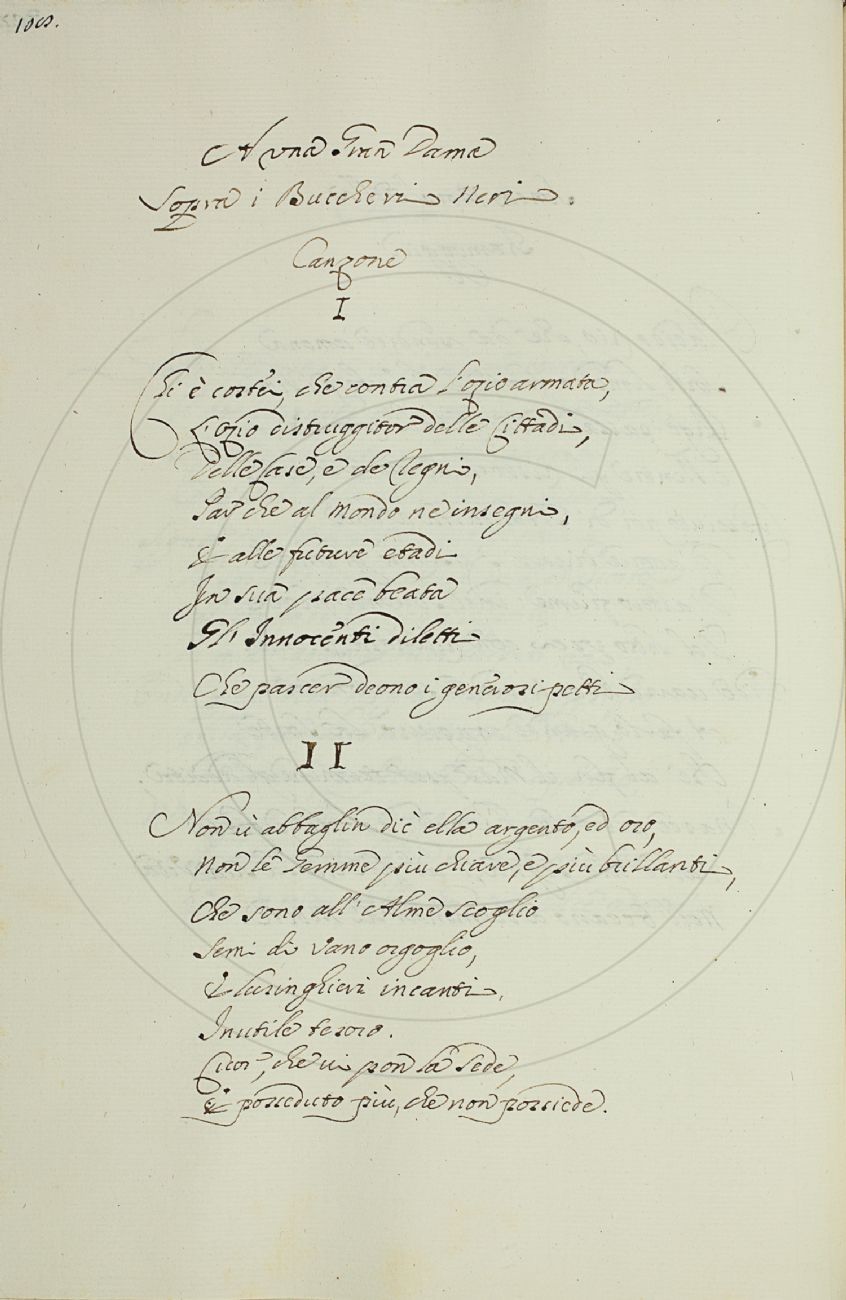 108.
A una Gran Dama
Sopra i Buccheri Neri.
Canzone
I
Chi è costei, che contra l'ozio armata,
L'ozio distruggitor delle Cittadi,
Delle Case, e de Regni,
Par che al Mondo ne insegni,
E alle future etadi
In sua pace beata
Gl'Innocenti diletti
Che pascer deono i generosi petti
II
Non v'abbaglin dic'ella argento, ed oro,
Non le Gemme più chiare, e più brillanti,
Che sono all'Alme scoglio
Semi di vano orgoglio,
E lusinghieri incanti,
Inutile tesoro.
Cuor, che vi pon la Sede,
E posseduto più, che non possiede.